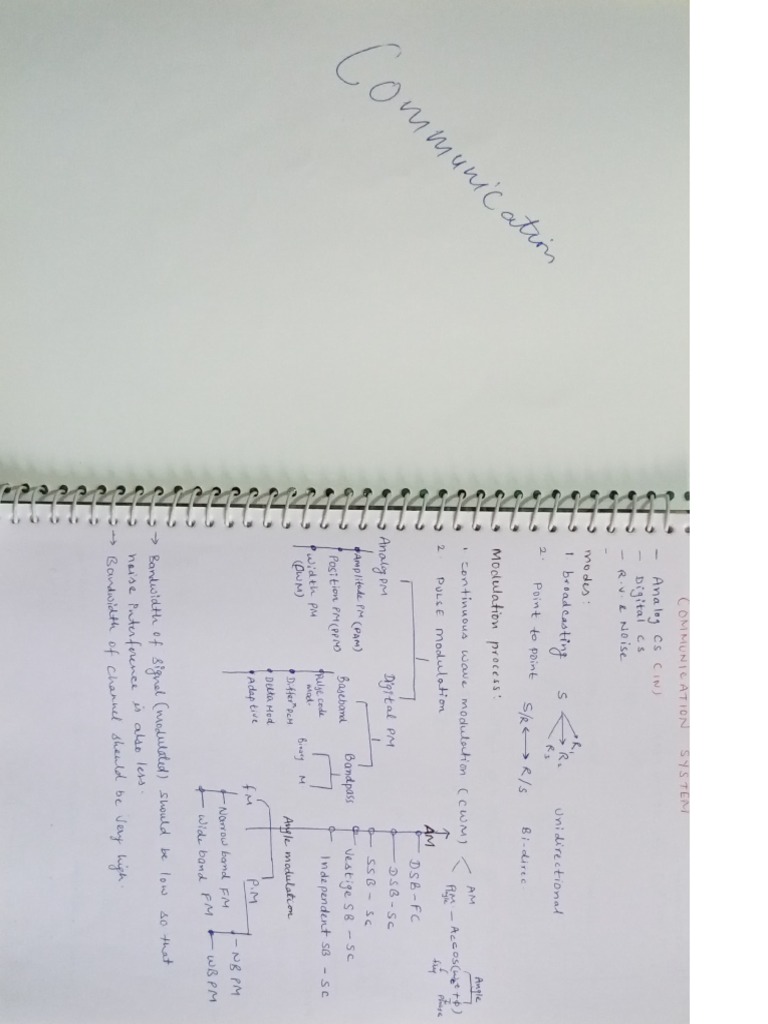 Communication
COMMUNICATION SYSTEM
- Analog CS (IV)
- Digital CS
- R.V. & Noise
-
modes:
1 broadcasting S R1 R2 R3 Unidirectional
2. Point to point S/R ⟷ R/S Bi-direc.
Modulation process:
1. Continuous wave modulation (CWM) < AM
Angle M - Ac cos(ωct + φ)
Angle
freq phase
2. PULSE Modulation
Analog PM
Amplitude PM (PAM)
Position PM (PPM)
Width PM
(PWM)
Digital PM
Baseband
Pulse code
mod.
Differn PCM
Delta Mod
Adaptive
Bandpass
Binary M
AM
DSB-FC
DSB-SC
SSB-SC
Vestige SB-SC
Independent SB-SC
Angle modulation
FM
Narrow band FM
Wide band FM
P.M
NBPM
WBPM
→ Bandwidth of signal (modulated) should be low so that
noise interference is also less.
→ Bandwidth of channel should be very high.